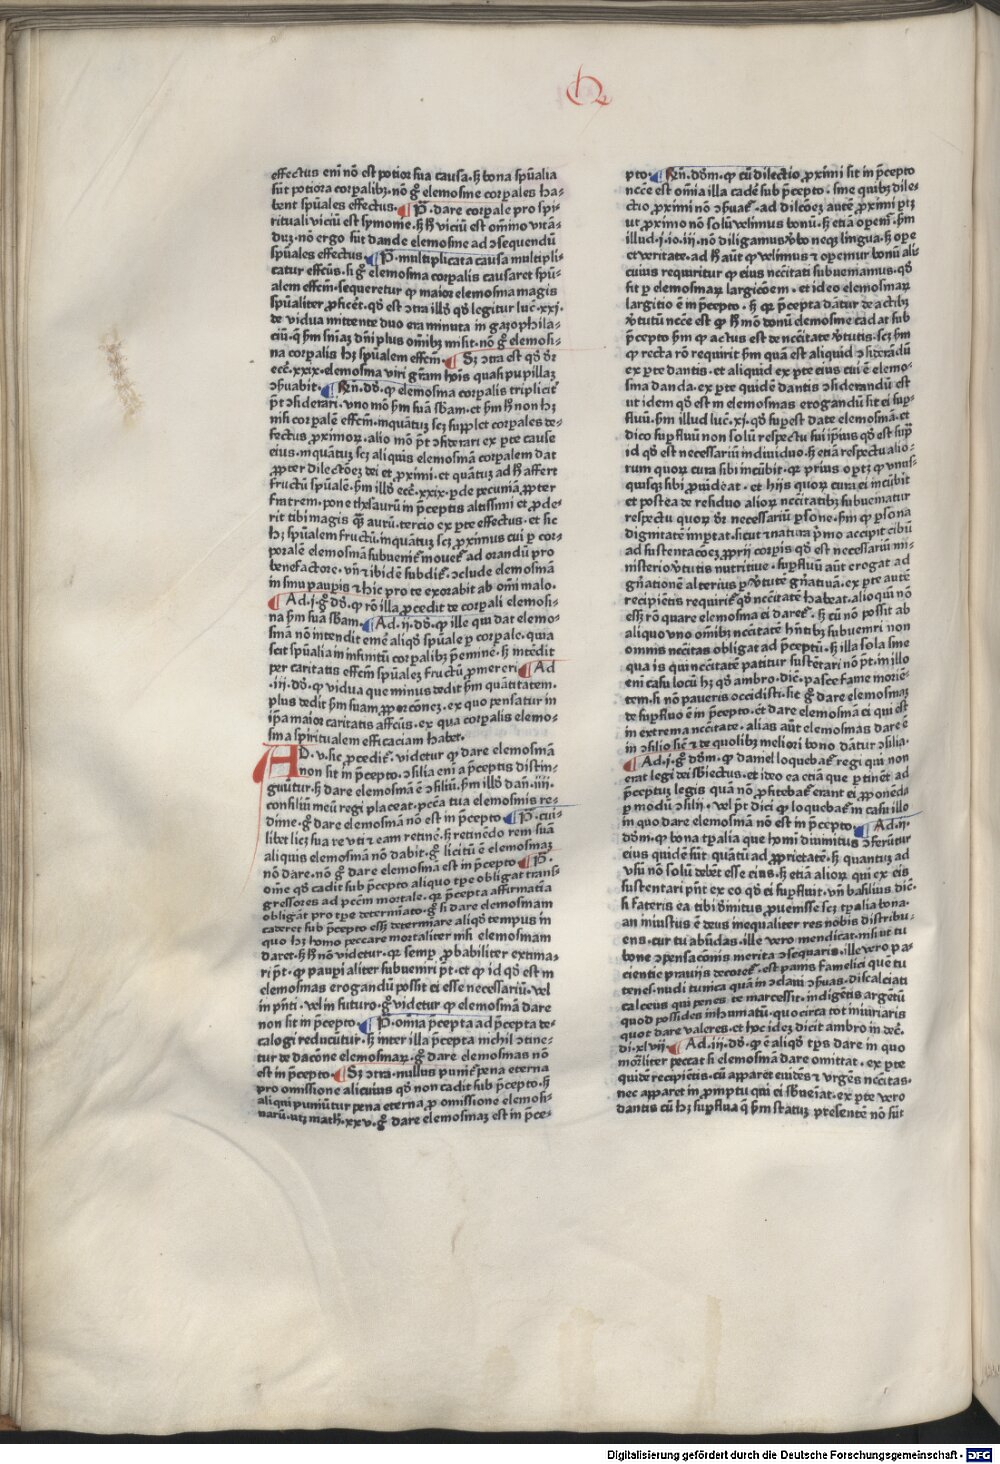 effectus enī nō est potior sua causa. sꝫ bona spūalia
sūt potiora corꝑalibꝫ. nō gͦ elemosine corꝑales ha-
bent spūales effectus. ¶ P̄. dare corꝑale pro spi-
rituali viciū est symonie. sꝫ hͦ viciū est om̄ino vitā-
duꝫ. nō ergo sūt dande elemosine ad ɔsequendū
spūales effectus. ¶ P̄. multiplicata causa multipli-
catur effcūs. si gͦ elemosina corꝑalis causaret spū-
alem effcm̄. sequeretur ꝙ maior elemosina magis
spūaliter ꝓficēt. qd̄ est ɔtra illd̄ qd̄ legitur luc̄. xxj.
de vidua mittente duo era minuta in gazophila-
ciū. q̄ ẜm snīaꝫ dn̄i plus om̄ibꝫ misit. nō gͦ elemosi-
na corꝑalis hꝫ spūalem effcm̄. ¶ Sꝫ ɔtra est qd̄ dr̄
ecc̄. xxix. elemosina viri gr̄am hoīs quasi pupillaꝫ
ɔẜuabit. ¶ Rn̄. dd̄. ꝙ elemosina corꝑalis tripliciẗ
pt̄ ɔsiderari. vno mō ẜm suā sb̄am. et ẜm hͦ non hꝫ
nisi corꝑalē effcm̄. inquātuꝫ scꝫ supplet corꝑales de-
fectus ꝓximoꝝ. alio mō pt̄ ɔsiderari ex ꝑte cause
eius. inquātuꝫ scꝫ aliquis elemosinā corꝑalem dat
ꝓpter dilectōeꝫ dei et ꝓximi. et quātuꝫ ad hͦ affert
fructū spūalē. ẜm illd̄ ecc̄. xxix. ꝑde pecuniā ꝓpter
fratrem. pone thesaurū in p̄ceptis altissimi et ꝓde-
rit tibi magis qͣꝫ aurū. tercio ex ꝑte effectus. et sic
hꝫ spūalem fructū. inquātuꝫ scꝫ ꝓximus cui ꝑ cor-
ꝑalē elemosinā subueniẗ mouet᷑ ad orandū pro
benefactore. vn̄ et ibidē subdit᷑. ɔclude elemosinā
in sinu pauꝑis et hic pro te exorabit ab om̄i malo.
¶ Ad. j. gͦ dd̄. ꝙ rō illa ꝓcedit de corꝑali elemosi-
na ẜm suā sb̄am. ¶ Ad. ij. dd̄. ꝙ ille qui dat elemo-
sinā nō intendit emē aliqd̄ spūale ꝑ corꝑale. quia
scit spūalia in infinitū corꝑalibꝫ p̄emine. sꝫ intēdit
per caritatis effcm̄ spūaleꝫ fructū ꝓmereri. ¶ Ad
.iij. dd̄. ꝙ vidua que minus dedit ẜm quātitatem.
plus dedit ẜm suam ꝓporcōneꝫ. ex quo pensatur in
ip̄a maior caritatis affcūs. ex qua corꝑalis elemo-
sina spiritualem efficaciam habet.
AD. v. sic ꝓcedit᷑. videtur ꝙ dare elemosinā
non sit in p̄cepto. ɔsilia eni a p̄ceptis distin-
guūtur. sꝫ dare elemosinā ē ɔsiliū. ẜm illd̄ dan̄. iiij.
consiliū meū regi placeat. pcc̄a tua elemosinis re-
dime. gͦ dare elemosinā nō est in p̄cepto. ¶ P̄. cui-
libet licꝫ sua re vti et eam retinē. sꝫ retinēdo rem suā
aliquis elemosinā nō dabit. gͦ licitū ē elemosinaꝫ
nō dare. nō gͦ dare elemosinā est in p̄cepto. ¶ P̄.
om̄e qd̄ cadit sub p̄cepto aliquo tꝑe obligat trans-
gressores ad pcc̄m mortale. qꝛ p̄cepta affirmatia
obligāt pro tꝑe determīato. gͦ si dare elemosinam
caderet sub p̄cepto essꝫ determīare aliqd̄ tempus in
quo hꝫ homo peccare mortaliter nisi elemosinam
daret. sꝫ hͦ nō videtur. qꝛ semꝑ ꝓbabiliter extima-
ri pt̄. ꝙ pauꝑi aliter subueniri pt̄. et ꝙ id qd̄ est in
elemosinas erogandū possit ei esse necessariū. vel
in pn̄ti. vel in futuro. gͦ videtur ꝙ elemosinā dare
non sit in p̄cepto. ¶ P̄. om̄ia p̄cepta ad p̄cepta de-
calogi reducūtur. sꝫ inter illa p̄cepta nichil ɔtine-
tur de dacōne elemosinaꝝ. gͦ dare elemosinas nō
est in p̄cepto. ¶ Sꝫ ɔtra. nullus puniẗ pena eterna
pro omissione alicuius qd̄ non cadit sub p̄cepto. sꝫ
aliqui puniūtur pena eterna ꝓ omissione elemosi-
narū. vt pꝫ math̄. xxv. gͦ dare elemosinaꝫ est in p̄ce-
pto. ¶ Rn̄. dd̄m. ꝙ cū dilectio ꝓximi sit in p̄cepto
necc̄e est om̄ia illa cadē sub p̄cepto. sine quibꝫ dile-
ctio ꝓximi nō ɔẜuat᷑. ad dilcōeꝫ autē ꝓximi ꝑtꝫ
ut ꝓximo nō solū velimus bonū. sꝫ etiā operem᷑. ẜm
illud. j. io. iij. nō diligamus v̄bo neqꝫ lingua. sꝫ ope
et veritate. ad hͦ aūt ꝙ velimus et operemur bonū ali-
cuius requiritur ꝙ eius nccītati subueniamus. qd̄
fit ꝑ elemosinaꝝ largicōem. et ideo elemosinaꝝ
largitio ē in p̄cepto. sꝫ qꝛ p̄cepta dātur de actibꝫ
v̄tutū necc̄e est ꝙ hͦ mō donū elemosine cadat sub
p̄cepto ẜm ꝙ actus est de nccītate v̄tutis. scꝫ ẜm
ꝙ recta rō requirit ẜm quā est aliquid ɔsiderādū
ex ꝑte dantis. et aliquid ex ꝑte eius cui ē elemo-
sina danda. ex ꝑte quidē dantis ɔsiderandū est
ut idem qd̄ est in elemosinas erogandū sit ei suꝑ-
fluū. ẜm illud luc̄. xj. qd̄ suꝑest date elemosinā. et
dico suꝑfluū non solū respectu sui ip̄ius qd̄ est supͣ
id qd̄ est necessariū indiuiduo. sꝫ etiā respectu alio-
rum quoꝝ cura sibi incūbit. qꝛ prius oꝑtꝫ ꝙ vnus-
quisqꝫ sibi ꝓuideat. et hijs quoꝝ cura ei incūbit
et postea de residuo alioꝝ nccītatibꝫ subueniatur
respectu quoꝝ dr̄ necessariū ꝑsone. ẜm ꝙ ꝑsona
dignitatē importat. sicut et natura pͥmo accipit cibū
ad sustentacōeꝫ ꝓprij corꝑis qd̄ est necessariū mi-
nisterio v̄tutis nutritiue. suꝑfluū aūt erogat ad
gn̄ationē alterius ꝑ v̄tutē gn̄atiuā. ex ꝑte autē
recipiētis requiriẗ qd̄ nccītatē habeat. alioquī nō
essꝫ rō quare elemosina ei daret᷑. sꝫ cū nō possit ab
aliquo vno om̄ibꝫ nccītatē hn̄tibꝫ subueniri non
omnis nccītas obligat ad p̄ceptū. sꝫ illa sola sine
qua is qui nccītatē patitur sustētari nō pt̄. in illo
eni casu locū hꝫ qd̄ ambro. dic̄. pasce fame moriē-
tem. si nō paueris occidisti. sic gͦ dare elemosinaꝫ
de suꝑfluo ē in p̄cepto. et dare elemosinā ei qui est
in extrema nccītate. alias aūt elemosinas dare ē
in ɔsilio sic̄ et de quolibꝫ meliori bono dātur ɔsilia.
¶ Ad. j. gͦ dd̄m. ꝙ daniel loquebat᷑ regi qui non
erat legi dei sb̄iectus. et ideo ea etiā que ꝑtinēt ad
p̄ceptuꝫ legis quā nō ꝓfitebat᷑ erant ei ꝓponēda
ꝑ modū ɔsilij. vel pt̄ dici ꝙ loquebat᷑ in casu illo
in quo dare elemosinā nō est in p̄cepto. ¶ Ad. ij.
dd̄m. ꝙ bona tꝑalia que homī diuinitus ɔferūtur
eius quidē sūt quātū ad ꝓprietatē. sꝫ quantuꝫ ad
vsū nō solū debēt esse eius. sꝫ etiā alioꝝ qui ex eis
sustentari pn̄t ex eo qd̄ ei suꝑfluit. vn̄ basilius dic̄.
si fateris ea tibi diūnitus ꝓuenisse scꝫ tꝑalia bona.
an iniustus ē deus inequaliter res nobis distribu-
ens. cur tu abūdas. ille vero mendicat. nisi ut tu
bone dispensacōnis merita ɔsequaris. ille vero pa-
ciencie prauijs decoret᷑. est panis famelici quē tu
tenes. nudi tunica quā in ɔclaui ɔẜuas. discalciati
calceus qui penes te marcessit. indigētis argētū
quod possides inhumatū. quocirca tot iniuriaris
quot dare valeres. et hoc ideꝫ dicit ambro in dec̄.
di. xlvij. ¶ Ad. iij. dd̄. ꝙ ē aliqd̄ tp̄s dare in quo
mor̄liter peccat si elemosinā dare omittat. ex ꝑte
quidē recipiētis. cū apparet euidēs et vrgēs nccītas.
nec apparet in ꝓmptu qui ei sb̄ueniat. ex ꝑte vero
dantis cū hꝫ suꝑflua q̄ ẜm statuꝫ presentē nō sūt
Digitalisierung gefördert durch die Deutsche Forschungsgemeinschaft - DFG